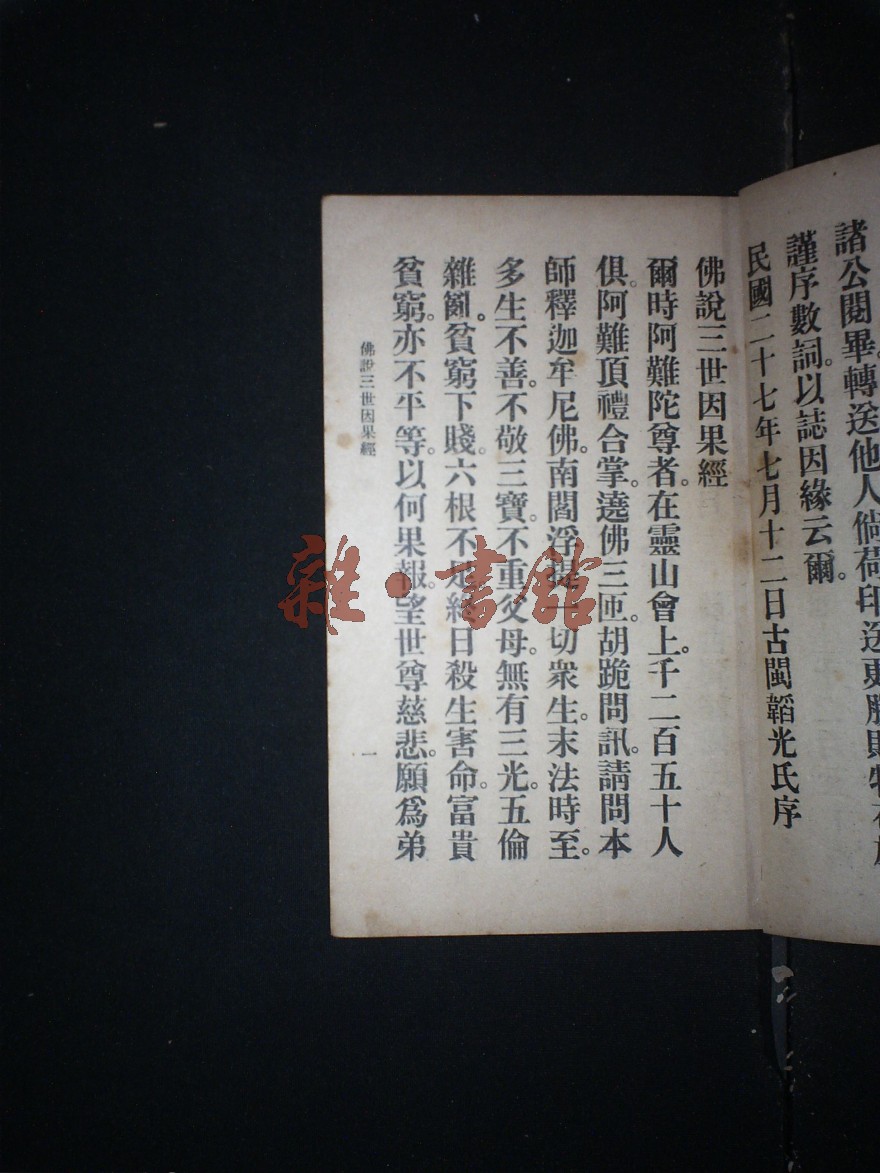 諸公閱畢。轉送他人。倘荷印送。更勝
謹序數詞。以誌因緣云爾。
民國二十七年七月十二日古閩韜光氏序
佛說三世因果經
爾時阿難陀尊者。在靈山會上。千二百五十人
俱。阿難頂禮合掌。遶佛三匝。胡跪問訊。請問本
師釋迦牟尼佛。南閻浮提一切衆生。末法時至。
多生不善。不敬三寶。不重父母。無有三光。五倫
雜亂。貧窮下賤。六根不足。終日殺生害命。富貴
貧窮。亦不平等。以何果報。望世尊慈悲。願爲弟
佛說三世因果經
一
雜·書館